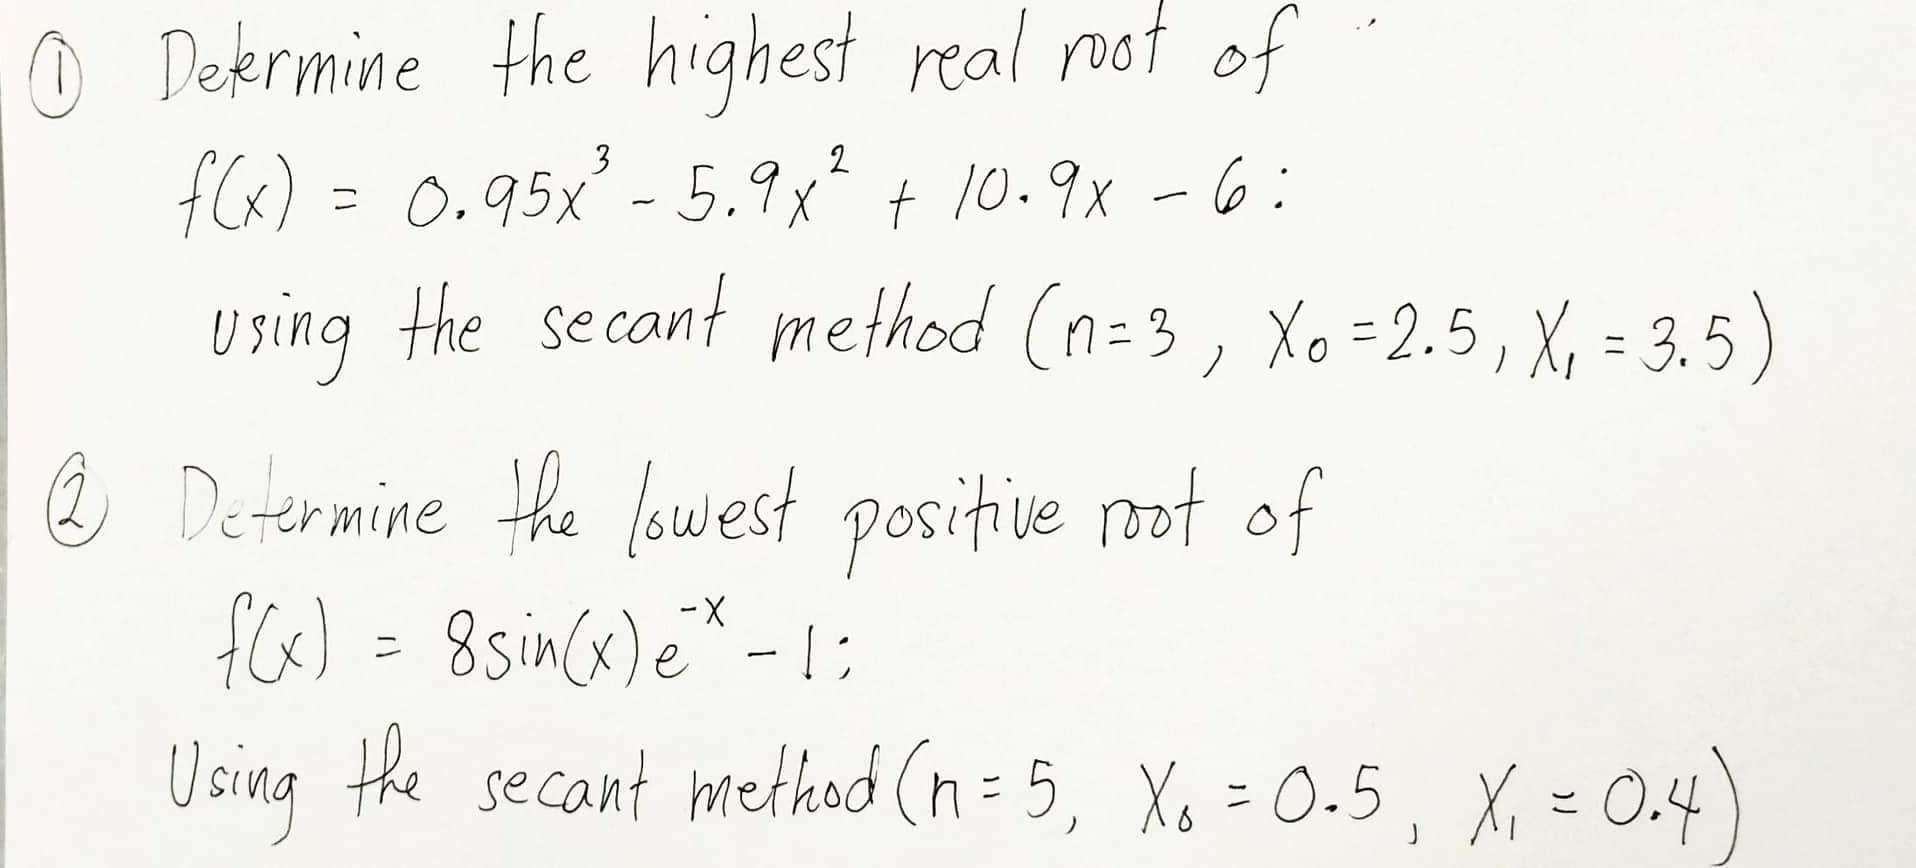 ① Determine the highest real root of
f(x) = 0.95x³ - 5.9x² + 10.9x - 6:
using the secant method (n=3, X₀ = 2.5, X₁ = 3.5)
② Determine the lowest positive root of
f(x) = 8sin(x)e⁻ˣ - 1:
Using the secant method (n = 5, X₀ = 0.5, X₁ = 0.4)